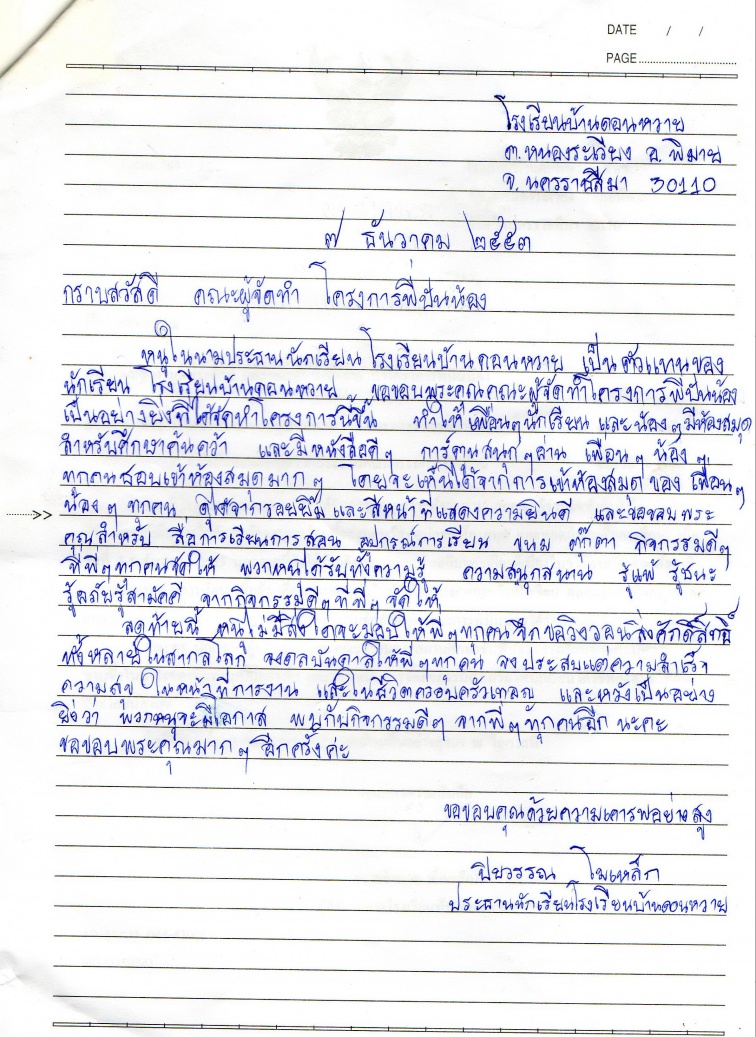 DATE / /
PAGE
โรงเรียนบ้านดอนหวาย
ต.หนองระเวียง อ.พิมาย
จ.นครราชสีมา 30110
๗ ธันวาคม ๒๕๕๓
กราบสวัสดี คณะผู้จัดทำ โครงการพี่ปันน้อง
หนูในนามประธานนักเรียนโรงเรียนบ้านดอนหวาย เป็นตัวแทนของ
นักเรียน โรงเรียนบ้านดอนหวาย ขอขอบพระคุณคณะผู้จัดทำโครงการพี่ปันน้อง
เป็นอย่างยิ่งที่ได้จัดทำโครงการนี้ขึ้น ทำให้เพื่อนๆนักเรียน และน้องๆมีห้องสมุด
สำหรับศึกษาค้นคว้า และมีหนังสือดีๆ การ์ตูนสนุกๆอ่าน เพื่อนๆ น้องๆ
ทุกคนชอบเข้าห้องสมุดมากๆ โดยจะเห็นได้จากการเข้าห้องสมุดของ เพื่อนๆ
>> น้องๆ ทุกคน ดูได้จากรอยยิ้ม และสีหน้าที่แสดงความยินดี และขอขอบพระ
คุณสำหรับ สื่อการเรียนการสอน อุปกรณ์การเรียน ขนม ตุ๊กตา กิจกรรมดีๆ
ที่พี่ๆทุกคนจัดให้ พวกหนูได้รับทั้งความรู้ ความสนุกสนาน รู้แพ้ รู้ชนะ
รู้อภัยรู้สามัคคี จากกิจกรรมดีๆที่พี่ๆจัดให้
สุดท้ายนี้ หนูไม่มีสิ่งใดจะมอบให้พี่ๆทุกคนจึกขอวิงวอนสิ่งศักดิ์สิทธิ์
ทั้งหลายในสากลโลก จงดลบันดาลให้พี่ๆทุกคน จงประสบแต่ความสำเร็จ
ความสุข ในหน้าที่การงาน และในชีวิตครอบครัวเทอญ และหวังเป็นอย่าง
ยิ่งว่า พวกหนูจะมีโอกาส พบกับกิจกรรมดีๆ จากพี่ๆทุกคนอีก นะคะ
ขอขอบพระคุณมากๆอีกครั้งค่ะ
ขอขอบคุณด้วยความเคารพอย่างสูง
ปิยวรรณ โพเหล็ก
ประธานนักเรียนโรงเรียนบ้านดอนหวาย